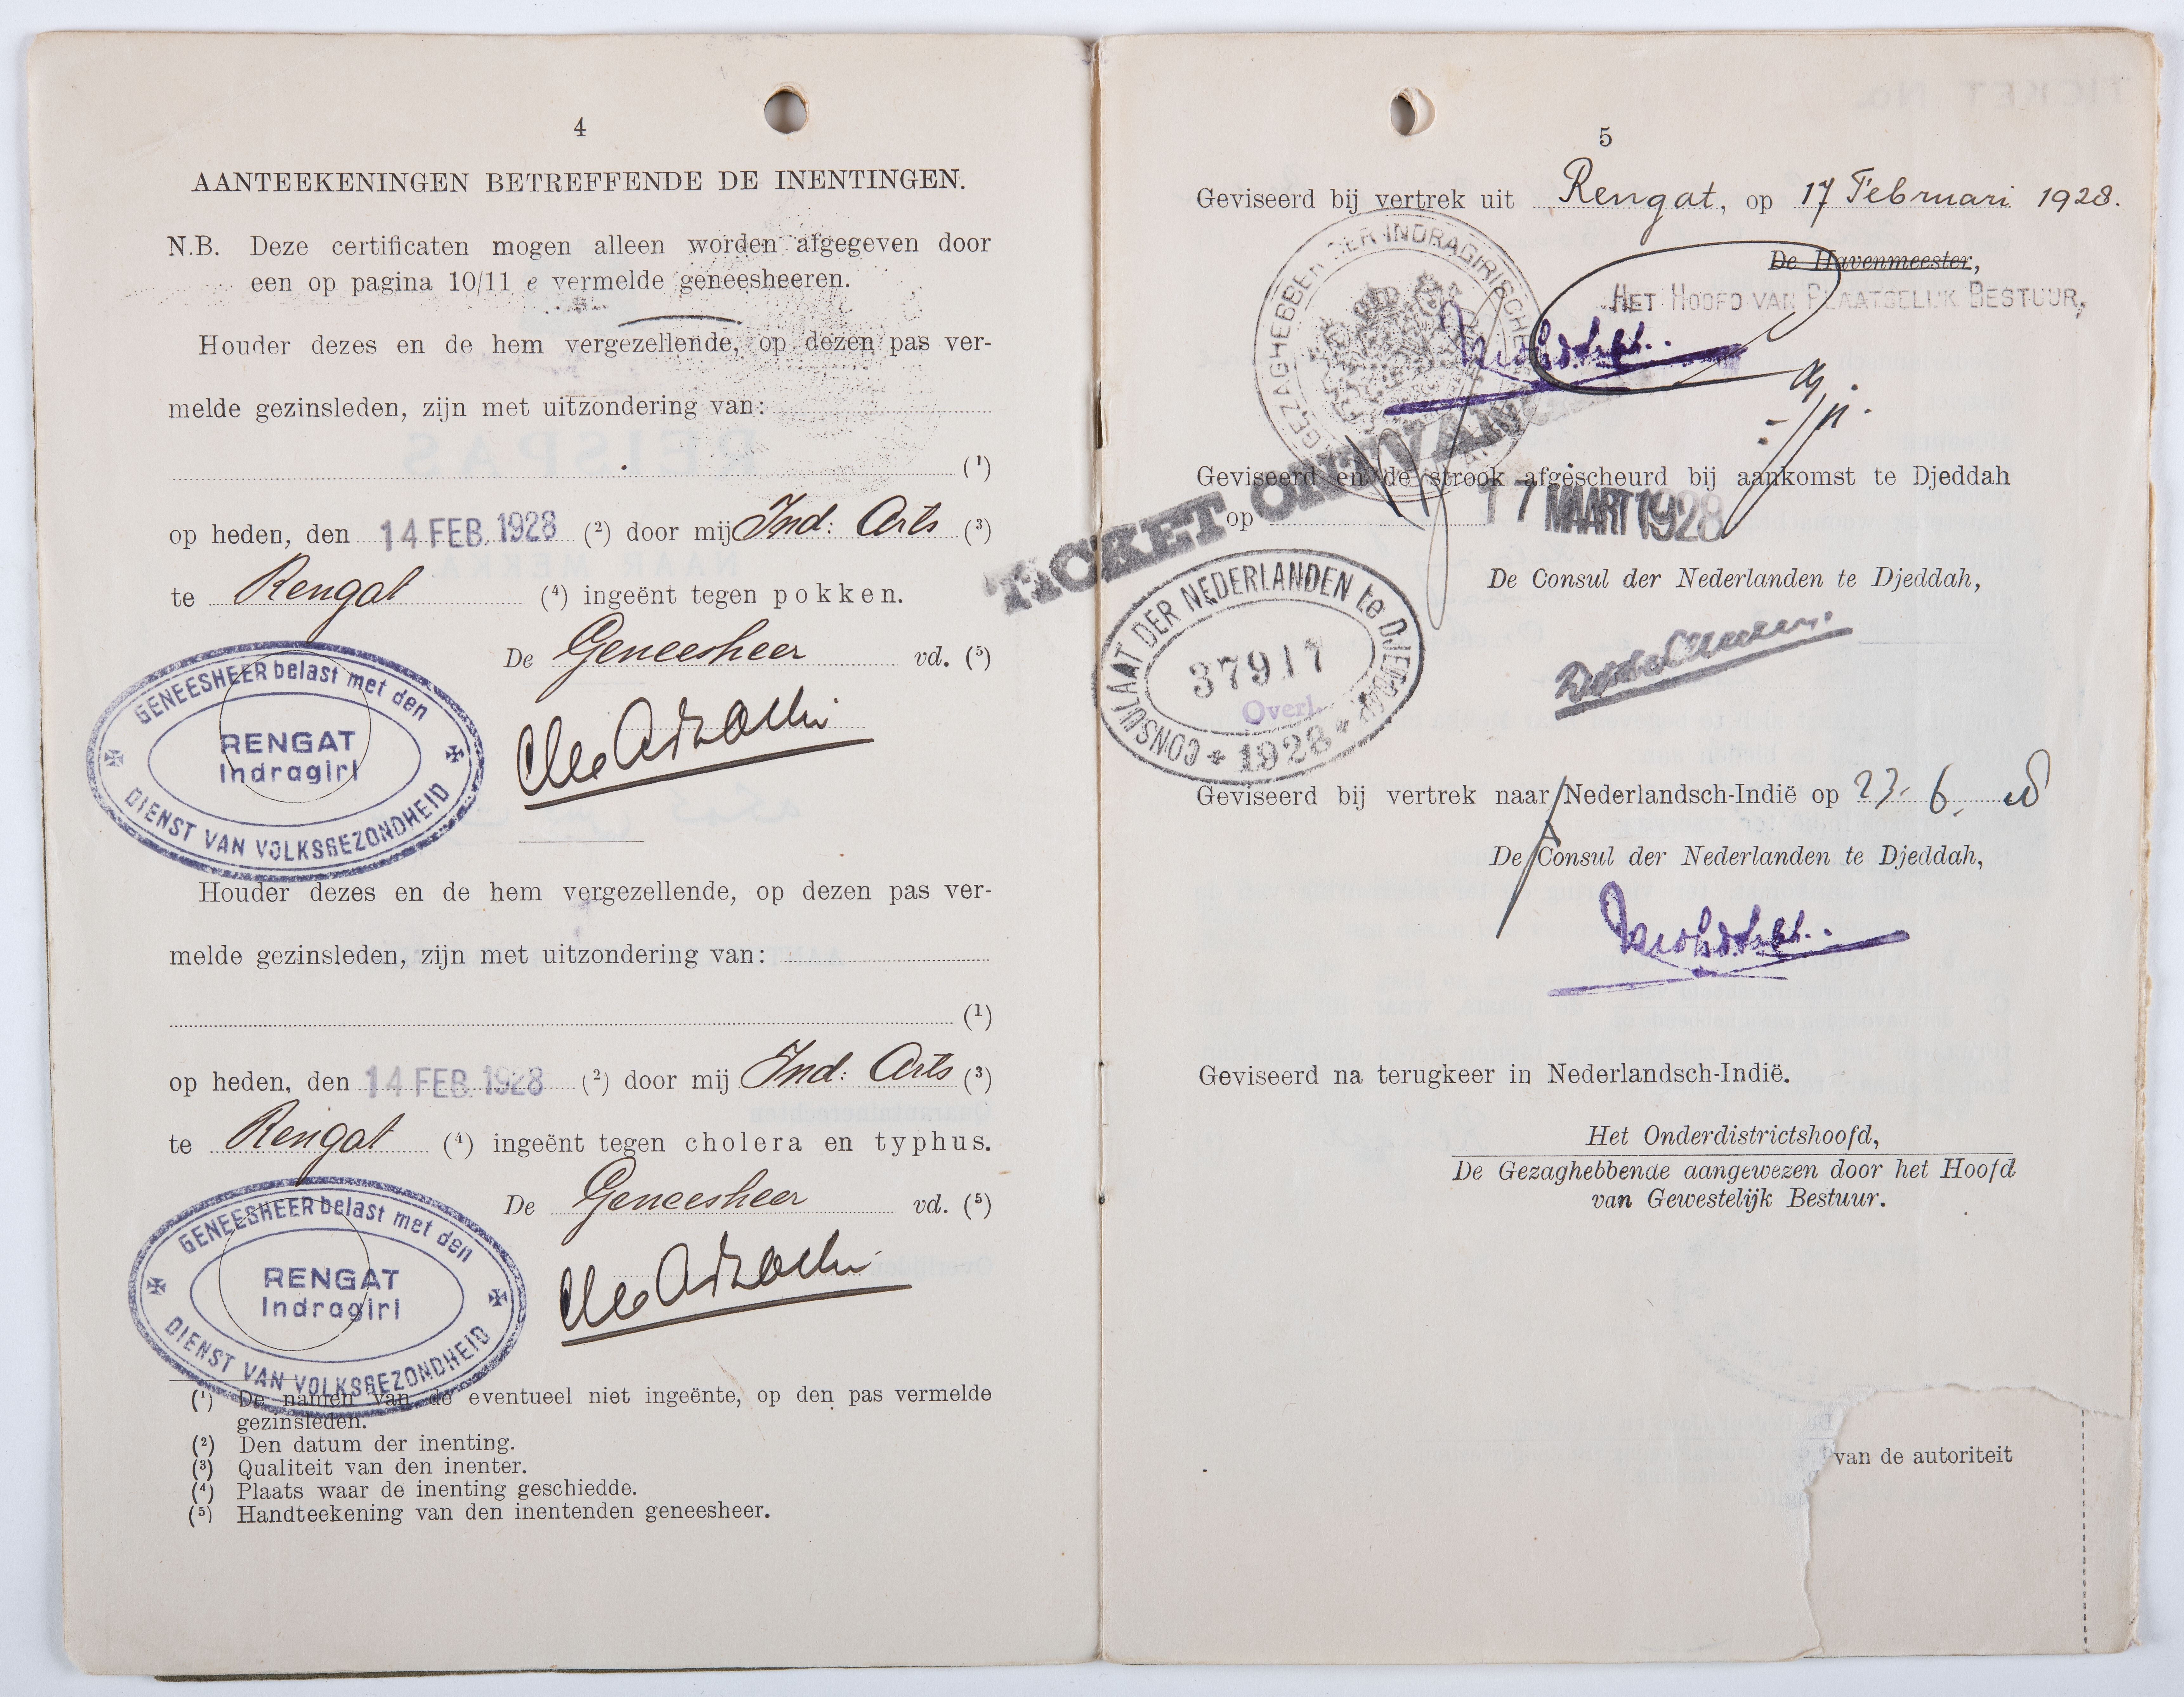 4
AANTEEKENINGEN BETREFFENDE DE INENTINGEN.
N.B. Deze certificaten mogen alleen worden afgegeven door
een op pagina 10/11 e vermelde geneesheeren.
Houder dezes en de hem vergezellende, op dezen pas ver-
melde gezinsleden, zijn met uitzondering van:
(1)
op heden, den 14 FEB. 1928 (2) door mij Ind: Arts (3)
te Rengat (4) ingeënt tegen pokken.
De Geneesheer vd. (5)
GENEESHEER belast met den
RENGAT
Indragiri
DIENST VAN VOLKSGEZONDHEID
Houder dezes en de hem vergezellende, op dezen pas ver-
melde gezinsleden, zijn met uitzondering van:
(1)
op heden, den 14 FEB. 1928 (2) door mij Ind: Arts (3)
te Rengat (4) ingeënt tegen cholera en typhus.
De Geneesheer vd. (5)
GENEESHEER belast met den
RENGAT
Indragiri
DIENST VAN VOLKSGEZONDHEID
(1) De namen van de eventueel niet ingeënte, op den pas vermelde
gezinsleden.
(2) Den datum der inenting.
(3) Qualiteit van den inenter.
(4) Plaats waar de inenting geschiedde.
(5) Handteekening van den inentenden geneesheer.
5
Geviseerd bij vertrek uit Rengat, op 17 Februari 1928.
De Havenmeester,
HET HOOFD VAN PLAATSELIJK BESTUUR,
GEZAGHEBBER DER INDRAGIRISCHE
TICKET ONTVANGEN
Geviseerd en de strook afgescheurd bij aankomst te Djeddah
op 17 MAART 1928
De Consul der Nederlanden te Djeddah,
CONSULAAT DER NEDERLANDEN te DJEDDAH
37917
Overl.
* 1928 *
Geviseerd bij vertrek naar Nederlandsch-Indië op 23. 6.
De Consul der Nederlanden te Djeddah,
Geviseerd na terugkeer in Nederlandsch-Indië.
Het Onderdistrictshoofd,
De Gezaghebbende aangewezen door het Hoofd
van Gewestelijk Bestuur.
van de autoriteit